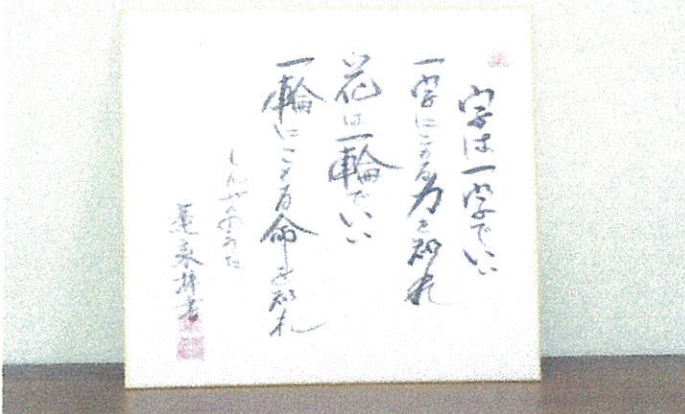 字は一字でいい
一字にこもる力を知れ
花は一輪でいい
一輪にこもる命を知れ
しんみんのうた